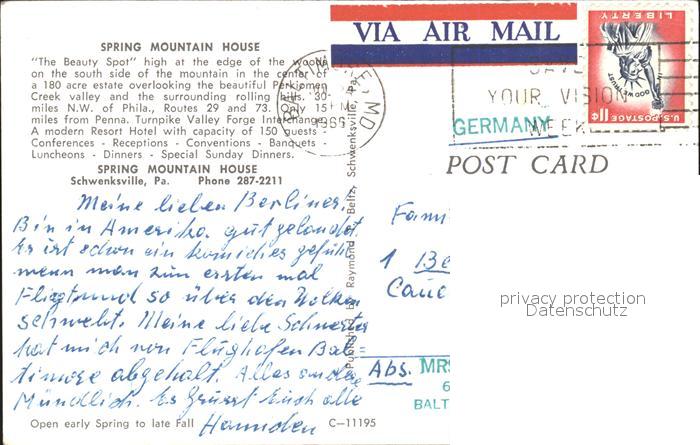 SPRING MOUNTAIN HOUSE
"The Beauty Spot" high at the edge of the woods
on the south side of the mountain in the center of
a 180 acre estate overlooking the beautiful Perkiomen
Creek valley and the surrounding rolling hills. 30
miles N.W. of Phila., Routes 29 and 73. Only 15
miles from Penna. Turnpike Valley Forge Interchange
A modern Resort Hotel with capacity of 150 guests -
Conferences - Receptions - Conventions - Banquets -
Luncheons - Dinners - Special Sunday Dinners.
SPRING MOUNTAIN HOUSE
Schwenksville, Pa. Phone 287-2211
Meine lieben Berliner!
Bin in Amerika gut gelandet.
Es ist schon ein komisches gefühl
wenn man zum ersten mal
Fliegt und so über den Wolken
schwebt. Meine liebe Schwester
hat mich von Flughafen Bal=
timore abgehalt. Alles andere
Mündlich. Es grüsst Euch alle
Open early Spring to late Fall
C-11195
Published by Raymond Beltz, Schwenksville, Pa.
VIA AIR MAIL
LIBERTY
IN GOD WE TRUST
U.S. POSTAGE 11¢
MD
YOUR VISION
WEEK
GERMANY
POST CARD
Fam
1 Be
privacy protection
Datenschutz
Abs. MRS
6
BALT